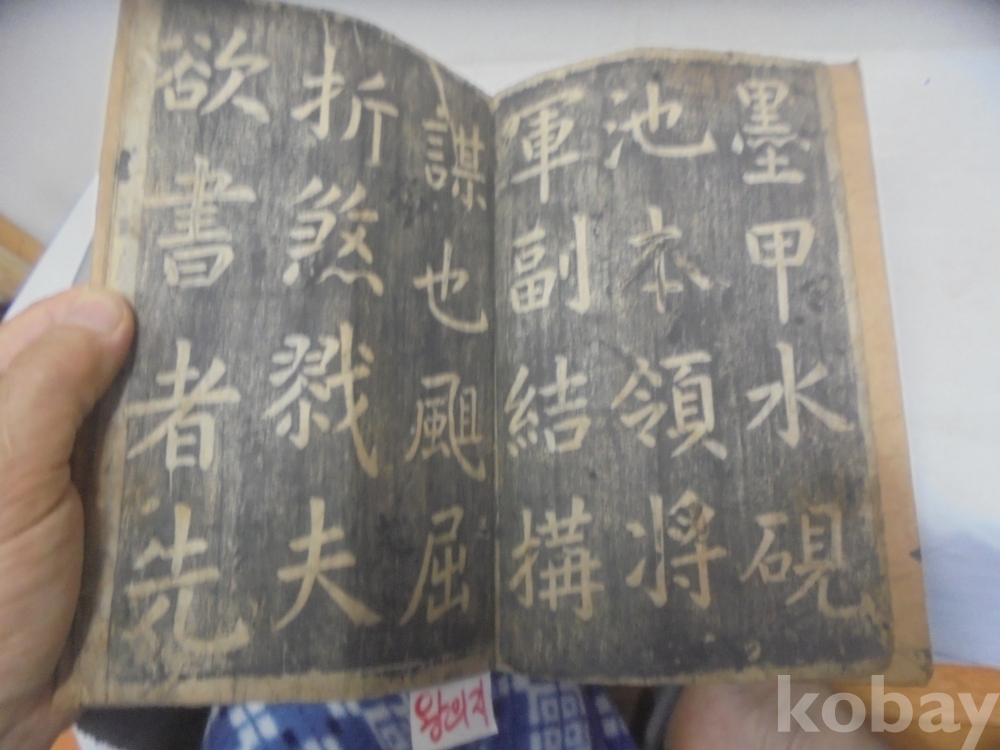 墨甲水硯
池本領将
軍副結搆
謀也颶屈
折煞戮夫
欲書者先
왕의지
kobay